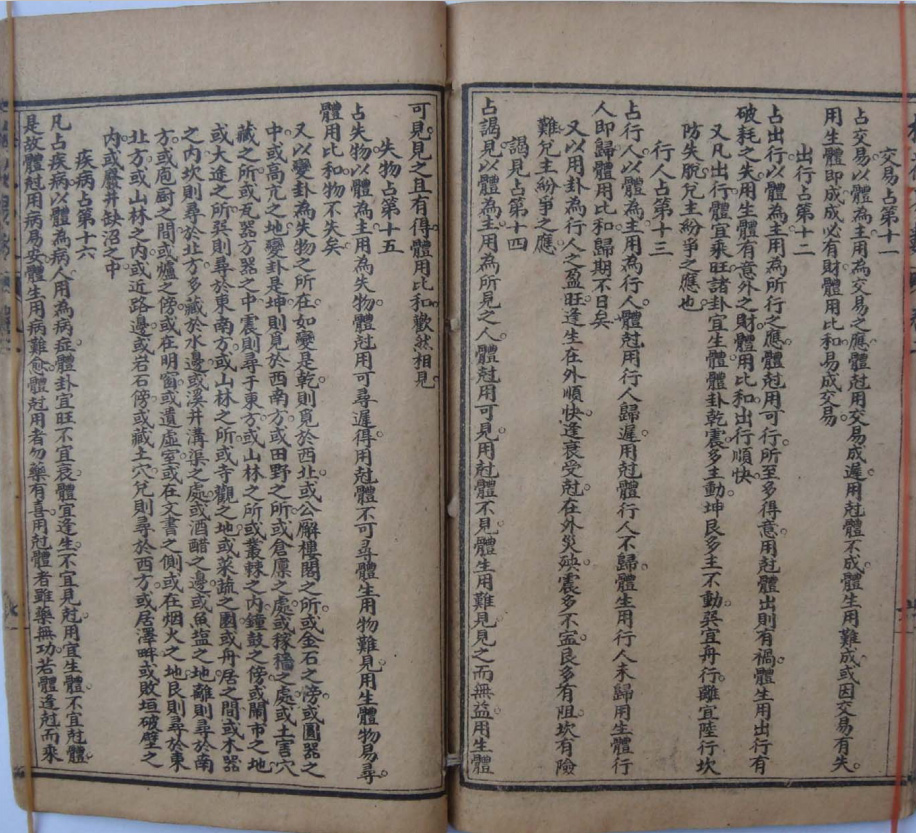 交易占第十一
占交易以體為主用為交易之應體尅用交易成遲用尅體不成體生用難成或因交易有失
用生體即成成必有財體用比和易成交易
出行占第十二
占出行以體為主用為所行之應體尅用可行所至多得意用尅體出則有禍體生用出行有
破耗之失用生體有意外之財體用比和出行順快
又凡出行體宜乘旺諸卦宜生體體卦乾震多主動坤艮多主不動巽宜舟行離宜陸行坎
防失脫兌主紛爭之應也
行人占第十三
占行人以體為主用為行人體尅用行人歸遲用尅體行人不歸體生用行人未歸用生體行
人即歸體用比和歸期不日矣
又以用卦為行人之盈旺逢生在外順快逢衰受尅在外災殃震多不寍艮多有阻坎有險
難兌主紛爭之應
謁見占第十四
占謁見以體為主用為所見之人體尅用可見用尅體不見體生用難見見之而無益用生體
可見見之且有得體用比和歡然相見
失物占第十五
占失物以體為主用為失物體尅用可尋遲得用尅體不可尋體生用物難見用生體物易尋
體用比和物不失矣
又以變卦為失物之所在如變是乾則覓於西北或公廨樓閣之所或金石之傍或圓器之
中或高亢之地變卦是坤則見於西南方或田野之所或倉廩之處或稼穡之處或土窖穴
藏之所或瓦器方器之中震則尋于東方或山林之所或叢棘之內鐘鼓之傍或鬧市之地
或大途之所巽則尋於東南方或山林之所或寺觀之地或菜蔬之園或舟居之間或木器
之內坎則尋於北方多藏於水邊或溪井溝渠之處或酒醋之邊或魚盐之地離則尋於南
方或庖厨之間或爐之傍或在明窗或遺虛室或在文書之側或在烟火之地艮則尋於東
北方或山林之內或近路邊或岩石傍或藏土穴兌則尋於西方或居澤畔或敗垣破壁之
內或廢井缺沼之中
疾病占第十六
凡占疾病以體為病人用為病症體卦宜旺不宜衰體宜逢生不宜見尅用宜生體不宜尅體
是故體尅用病易安體生用病難愈體尅用者勿藥有喜用尅體者雖藥無功若體逢尅而來